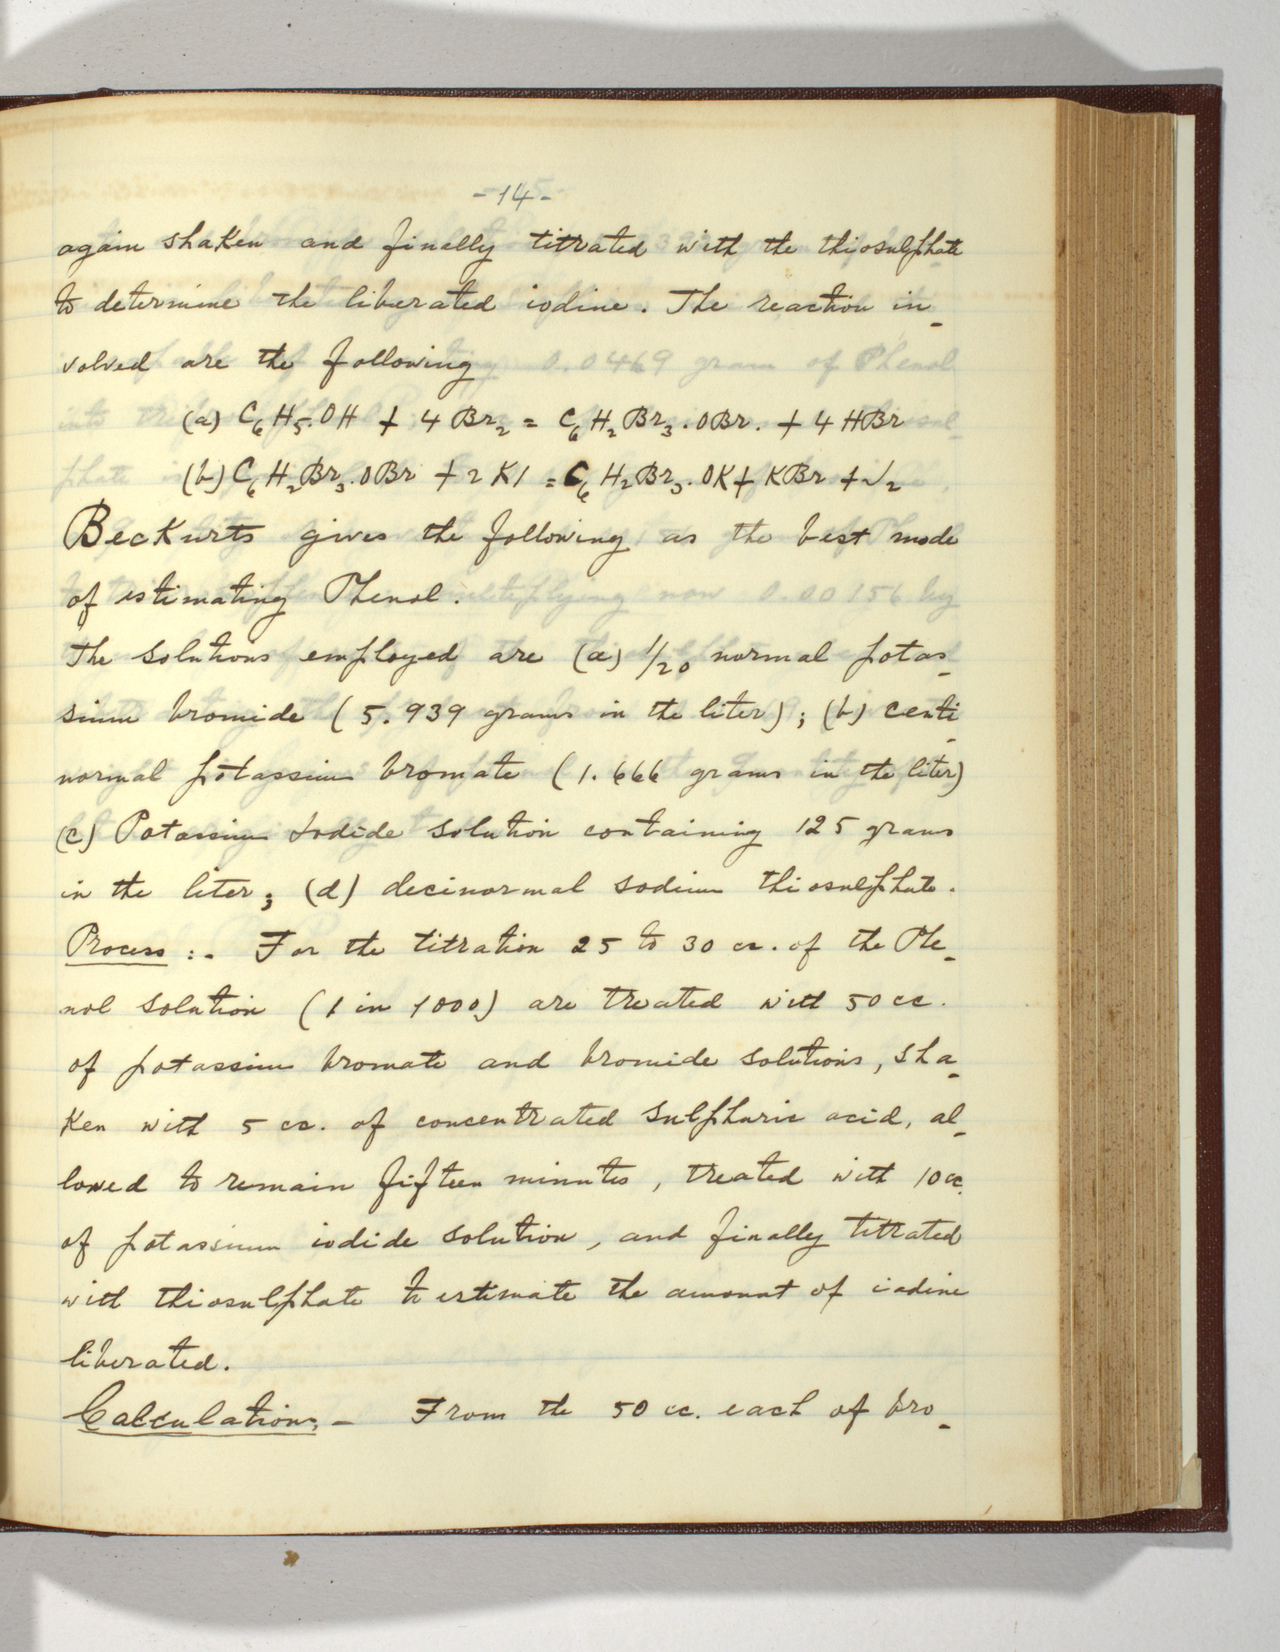 -14-
again shaken and finally titrated with the thiosulphate
to determine the liberated iodine. The reaction in-
volved are the following
(a) C₆H₅.OH + 4 Br₂ = C₆H₂Br₃.OBr. + 4 HBr
(b) C₆H₂Br₃.OBr + 2 KI = C₆H₂Br₃.OK + KBr + I₂
Beckurts gives the following as the best mode
of estimating Phenol.
The solutions employed are (a) 1/20 normal potas-
sium bromide (5.939 grams in the liter); (b) centi-
normal potassium bromate (1.666 grams in the liter)
(c) Potassium Iodide solution containing 125 grams
in the liter; (d) decinormal sodium thiosulphate.
Process :- For the titration 25 to 30 cc. of the Phe-
nol solution (1 in 1000) are treated with 50 cc.
of potassium bromate and bromide solutions, sha-
ken with 5 cc. of concentrated sulphuric acid, al-
lowed to remain fifteen minutes, treated with 10 cc.
of potassium iodide solution, and finally titrated
with thiosulphate to estimate the amount of iodine
liberated.
Calculations. - From the 50 cc. each of bro-